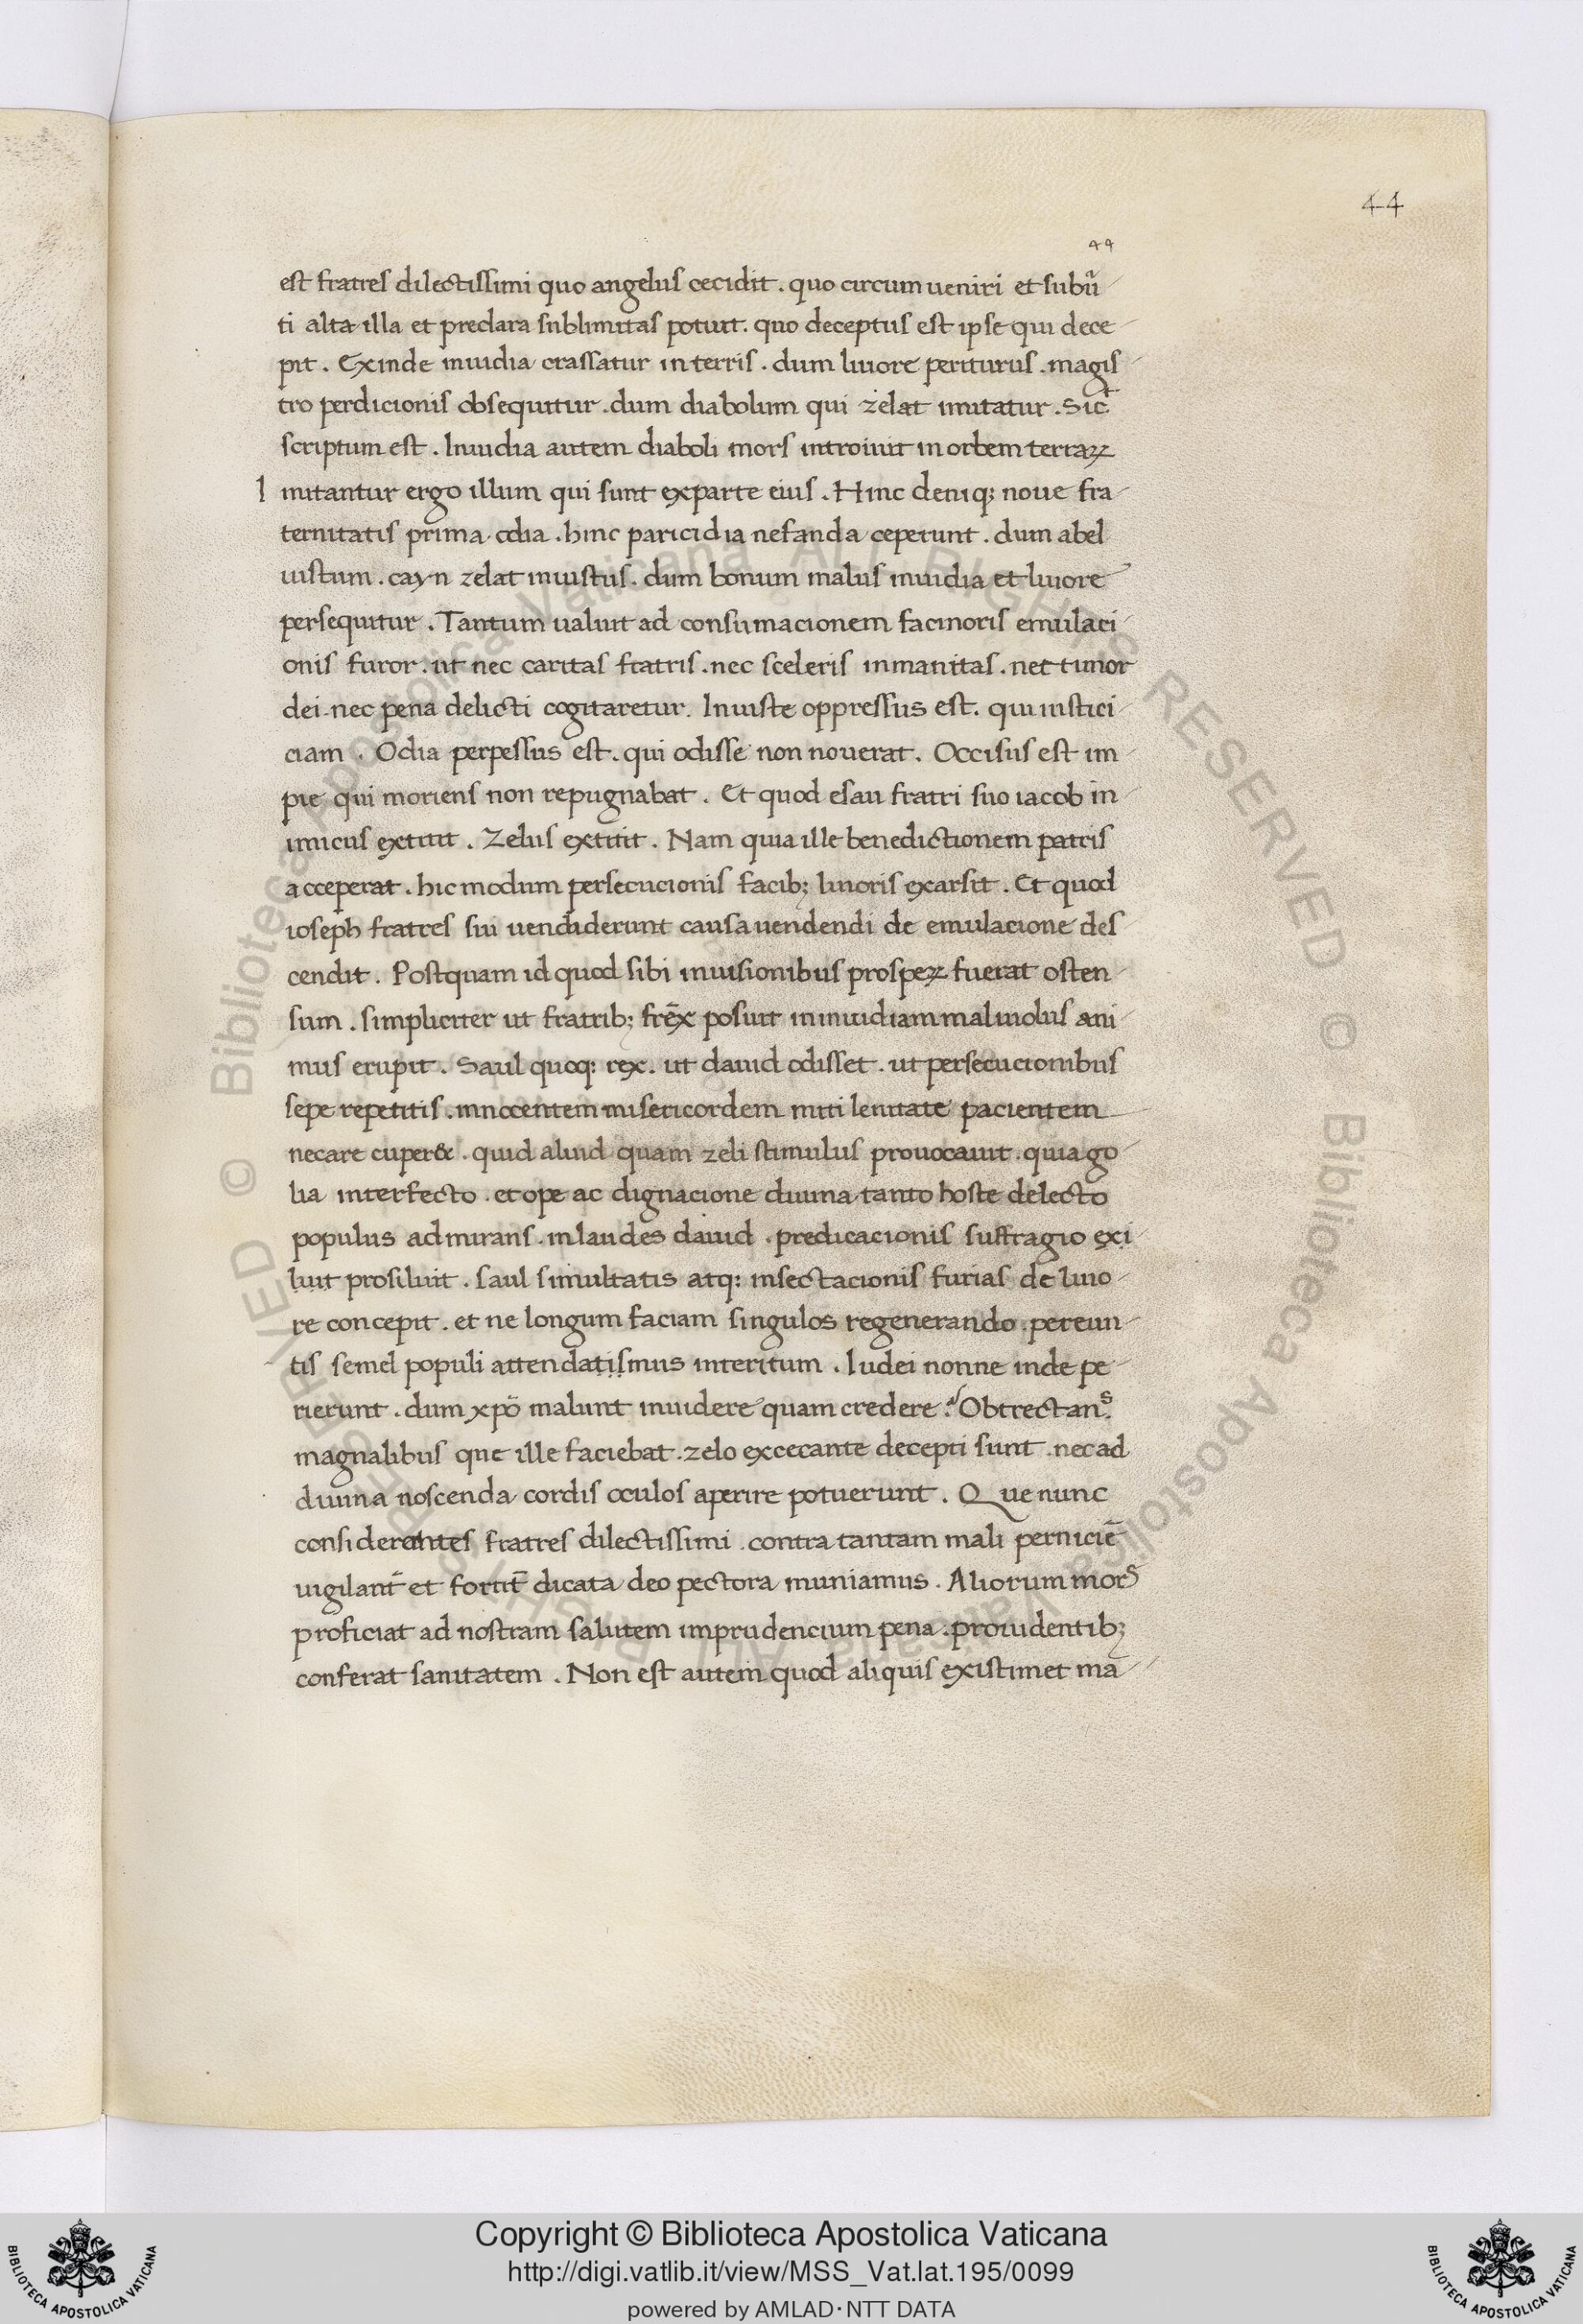 44
44
est fratres dilectissimi quo angelus cecidit . quo circum ueniri et subũ
ti alta illa et preclara sublimitas potuit . quo deceptus est ipse qui dece
pit . Exinde inuidia crassatur in terris . dum liuore periturus . magis
tro perdicionis obsequitur . dum diabolum qui zelat imitatur . Sic̃
scriptum est . Inuidia autem diaboli mors introiuit in orbem terraꝝ
I mitantur ergo illum qui sunt ex parte eius . Hinc deniq; noue fra
ternitatis prima odia . hinc paricidia nefanda ceperunt . dum abel
iustum . cayn zelat iniustus . dum bonum malus inuidia et liuore
persequitur . Tantum ualuit ad consumacionem facinoris emulaci
onis furor . ut nec caritas fratris . nec sceleris inmanitas . nec timor
dei . nec pena delicti cogitaretur . Iniuste oppressus est . qui iustici
ciam . Odia perpessus est . qui odisse non nouerat . Occisus est im
pie qui moriens non repugnabat . Et quod esau fratri suo iacob in
imicus extitit . Zelus extitit . Nam quia ille benedictionem patris
acceperat . hic modum persecucionis facib; liuoris exarsit . Et quod
ioseph fratres sui uendiderunt causa uendendi de emulacione des
cendit . Postquam id quod sibi in uisionibus prospeꝝ fuerat osten
sum . simpliciter ut fratrib; frẽx posuit in inuidiam maliuolus ani
mus erupit . Saul quoq: rex . ut dauid odisset . ut persecucionibus
sepe repetitis . innocentem misericordem miti lenitate pacientem
necare cuper& . quid aliud quam zeli stimulus prouocauit . quia go
lia interfecto . et ope ac dignacione diuina tanto hoste delecto
populus admirans . in laudes dauid . predicacionis suffragio exi
luit prosiluit . saul simultatis atq: insectacionis furias de liuo
re concepit . et ne longum faciam singulos regenerando . pereun
tis semel populi attendatismus interitum . Iudei nonne inde pe
rierunt . dum xpõ malunt inuidere quam credere ? Obtrectans
magnalibus que ille faciebat . zelo excecante decepti sunt . nec ad
diuina noscenda cordis oculos aperire potuerunt . Que nunc
considerantes fratres dilectissimi . contra tantam mali perniciẽ
uigilant̃ et fortit̃ dicata deo pectora muniamus . Aliorum mors
proficiat ad nostram salutem imprudencium pena . prouidentib;
conferat sanitatem . Non est autem quod aliquis existimet ma
Copyright © Biblioteca Apostolica Vaticana
http://digi.vatlib.it/view/MSS_Vat.lat.195/0099
powered by AMLAD·NTT DATA
BIBLIOTECA APOSTOLICA VATICANA
BIBLIOTECA APOSTOLICA VATICANA
© Biblioteca Apostolica Vaticana ALL RIGHTS RESERVED © Biblioteca Apostolica Vaticana ALL RIGHTS RESERVED